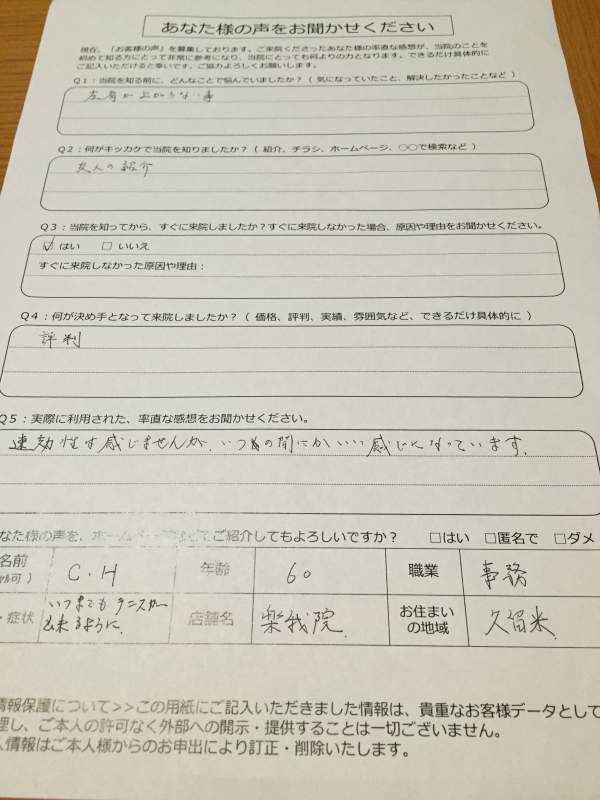 あなた様の声をお聞かせください
現在、「お客様の声」を募集しております。ご来院くださったあなた様の率直な感想が、当院のことを
初めて知る方にとって非常に参考になり、当院にとっても何よりの力となります。できるだけ具体的に
ご記入いただけると幸いです。ご協力よろしくお願いします。
Q1：当院を知る前に、どんなことで悩んでいましたか？（ 気になっていたこと、解決したかったことなど ）
が上がらない事
Q2：何がキッカケで当院を知りましたか？（ 紹介、チラシ、ホームページ、○○で検索など ）
友人の紹介
Q3：当院を知ってから、すぐに来院しましたか？すぐに来院しなかった場合、原因や理由をお聞かせください。
☑ はい □ いいえ
すぐに来院しなかった原因や理由：
Q4：何が決め手となって来院しましたか？（ 価格、評判、実績、雰囲気など、できるだけ具体的に ）
評判
Q5：実際に利用された、率直な感想をお聞かせください。
速効性は感じませんが、いつの間にかいい感じになっています。
なた様の声を、ホームペ ご紹介してもよろしいですか？ □はい □匿名で □ダメ
名前 C.H 年齢 60 職業 事務
可）
・症状 いつまでもテニスが 店舗名 楽我院 お住まい 久留米
出来るように の地域
情報保護について>>この用紙にご記入いただきました情報は、貴重なお客様データとして
理し、ご本人の許可なく外部への開示・提供することは一切ございません。
人情報はご本人様からのお申出により訂正・削除いたします。